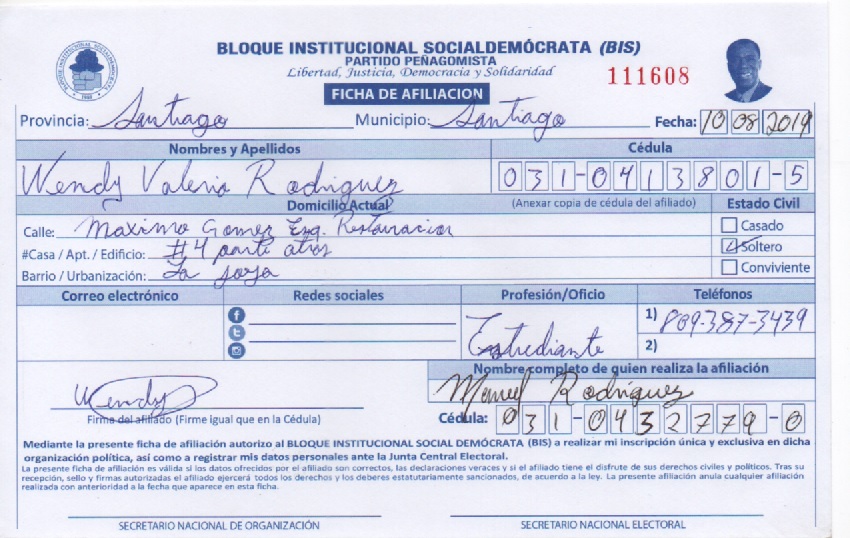 BLOQUE INSTITUCIONAL SOCIALDEMÓCRATA (BIS)
PARTIDO PEÑAGOMISTA
Libertad, Justicia, Democracia y Solidaridad
111608
FICHA DE AFILIACION
Provincia: Santiago Municipio: Santiago Fecha: 10 08 2019
Nombres y Apellidos Cédula
Wendy Valeria Rodriguez 031-0413801-5
Domicilio Actual (Anexar copia de cédula del afiliado) Estado Civil
Calle: Maximo Gomez Esq. Restauracion Casado
#Casa / Apt. / Edificio: #4 parte atras Soltero
Barrio / Urbanización: La joya Conviviente
Correo electrónico Redes sociales Profesión/Oficio Teléfonos
1) 809-387-3439
Estudiante 2)
Nombre completo de quien realiza la afiliación
Wendy Manuel Rodriguez
Firma del afiliado (Firme igual que en la Cédula) Cédula: 031-0432779-0
Mediante la presente ficha de afiliación autorizo al BLOQUE INSTITUCIONAL SOCIAL DEMÓCRATA (BIS) a realizar mi inscripción única y exclusiva en dicha
organización política, así como a registrar mis datos personales ante la Junta Central Electoral.
La presente ficha de afiliación es válida si los datos ofrecidos por el afiliado son correctos, las declaraciones veraces y si el afiliado tiene el disfrute de sus derechos civiles y políticos. Tras su
recepción, sello y firmas autorizadas el afiliado ejercerá todos los derechos y los deberes estatutariamente sancionados, de acuerdo a la ley. La presente afiliación anula cualquier afiliación
realizada con anterioridad a la fecha que aparece en esta ficha.
SECRETARIO NACIONAL DE ORGANIZACIÓN SECRETARIO NACIONAL ELECTORAL